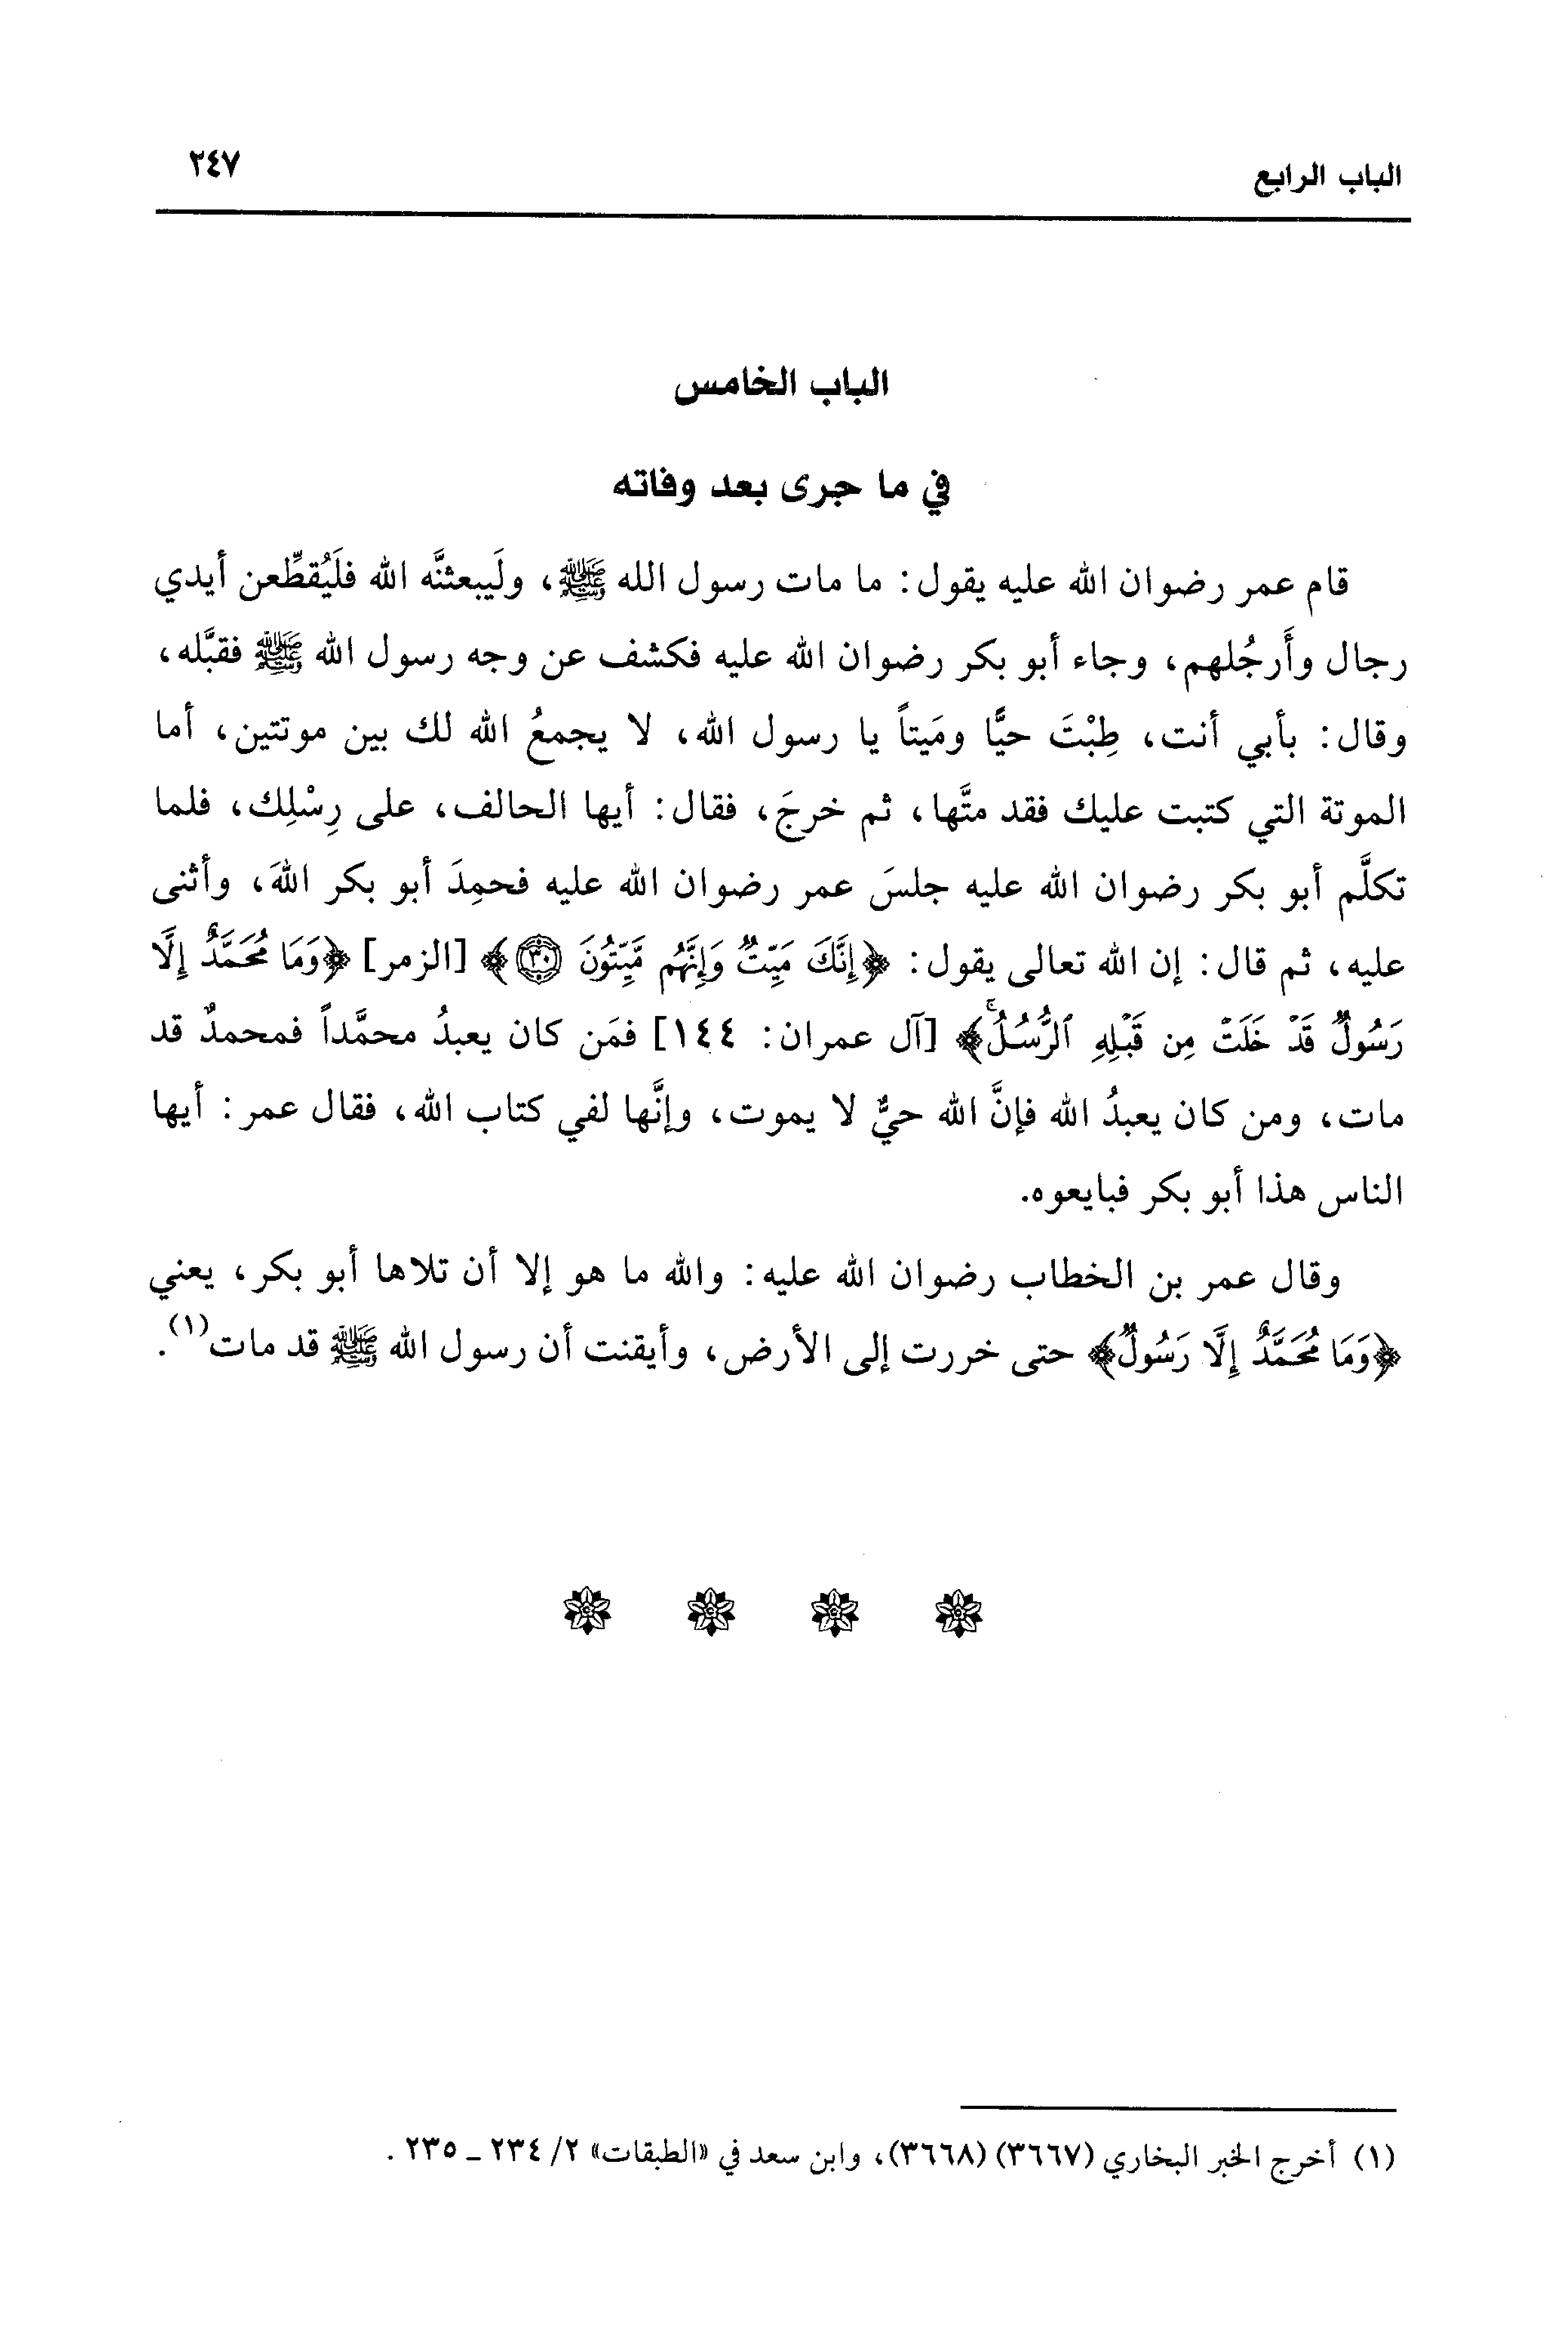 الباب الرابع ٢٤٧
الباب الخامس
في ما جرى بعد وفاته
قام عمر رضوان الله عليه يقول: ما مات رسول الله ﷺ، ولَيبعثنَّه الله فلَيُقطِّعن أيدي
رجال وأَرجُلهم، وجاء أبو بكر رضوان الله عليه فكشف عن وجه رسول الله ﷺ فقبَّله،
وقال: بأبي أنت، طِبْتَ حيًّا ومَيتاً يا رسول الله، لا يجمعُ الله لك بين موتتين، أما
الموتة التي كتبت عليك فقد متَّها، ثم خرجَ، فقال: أيها الحالف، على رِسْلِك، فلما
تكلَّم أبو بكر رضوان الله عليه جلسَ عمر رضوان الله عليه فحمِدَ أبو بكر اللهَ، وأثنى
عليه، ثم قال: إن الله تعالى يقول: ﴿إِنَّكَ مَيِّتٌ وَإِنَّهُم مَّيِّتُونَ ٣٠﴾ [الزمر] ﴿وَمَا مُحَمَّدٌ إِلَّا
رَسُولٌ قَدْ خَلَتْ مِن قَبْلِهِ ٱلرُّسُلُۚ﴾ [آل عمران: ١٤٤] فمَن كان يعبدُ محمَّداً فمحمدٌ قد
مات، ومن كان يعبدُ الله فإنَّ الله حيٌّ لا يموت، وإنَّها لفي كتاب الله، فقال عمر: أيها
الناس هذا أبو بكر فبايعوه.
وقال عمر بن الخطاب رضوان الله عليه: والله ما هو إلا أن تلاها أبو بكر، يعني
﴿وَمَا مُحَمَّدٌ إِلَّا رَسُولٌ﴾ حتى خررت إلى الأرض، وأيقنت أن رسول الله ﷺ قد مات(١).
(١) أخرج الخبر البخاري (٣٦٦٧) (٣٦٦٨)، وابن سعد في «الطبقات» ٢/ ٢٣٤ - ٢٣٥.